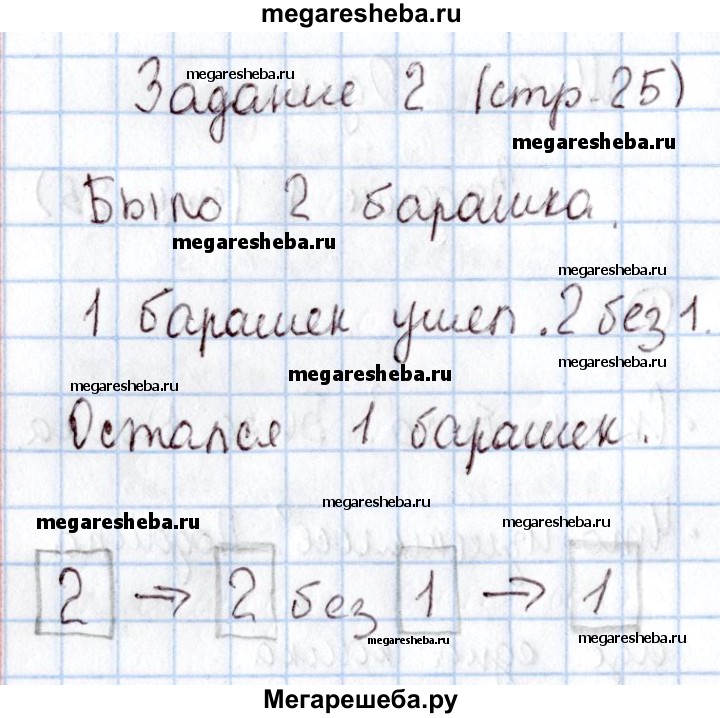 megaresheba.ru
megaresheba.ru
Задание 2 (стр. 25)
megaresheba.ru
Было 2 барашка.
megaresheba.ru
megaresheba.ru
1 барашек ушел. 2 без 1.
megaresheba.ru
megaresheba.ru
megaresheba.ru
Остался 1 барашек.
megaresheba.ru
megaresheba.ru
megaresheba.ru
2 → 2 без 1 → 1
megaresheba.ru
megaresheba.ru
Мегарешеба.ру